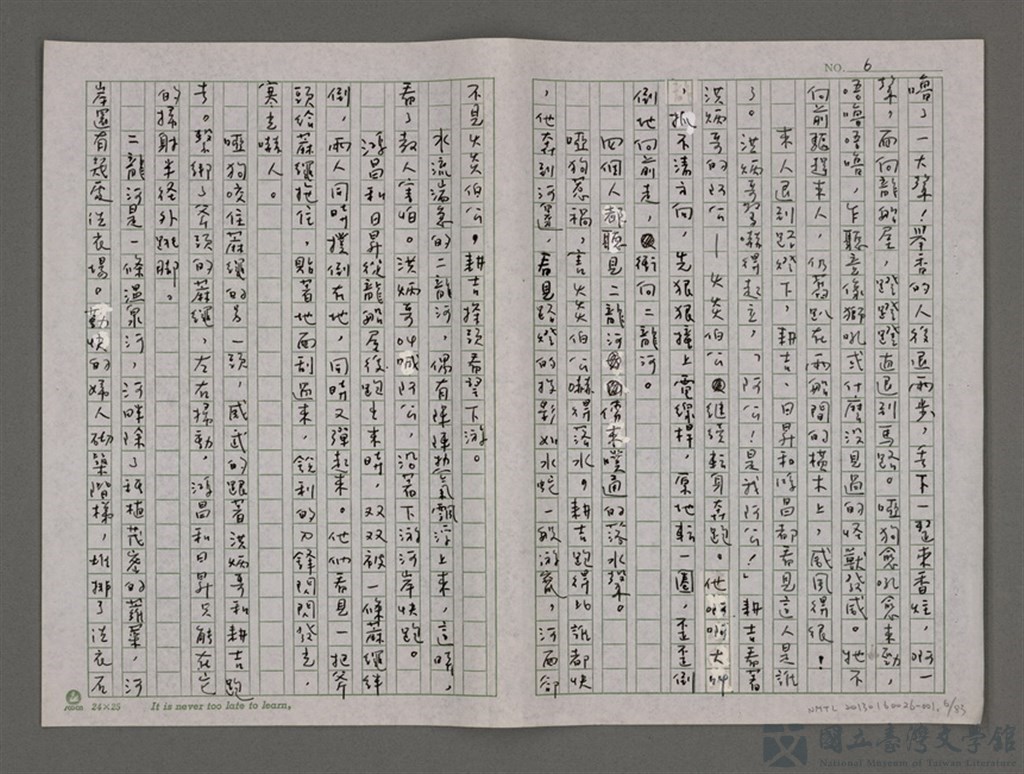 NO. 6
嚕了一大聲！舉香的人後退兩步，丟下一整束香炷，啊一
聲，面向龍船屋，蹬蹬蹬直退到馬路。啞狗愈吼愈來勁，
唔嚕唔嚕，乍聽音像獅吼或什麼沒見過的怪獸發威。牠不
向前驅趕來人，仍舊趴在兩船間的橫木上，威風得很！
來人退到路燈下，耕吉、日昇和鴻昌都看見這人是誰
了。洪炳哥驚嚇得起立，「阿公！是我阿公！」耕吉看著
洪炳哥的阿公－火炎伯公繼續轉身奔跑。他啊啊大叫
，抓不清方向，先狠狠撞上電線桿，原地轉一圈，歪歪倒
倒地向前走，衝向二龍河。
四個人都聽見二龍河傳來噗通的落水聲。
啞狗惹禍，害火炎伯公嚇得落水。耕吉跑得比誰都快
，他奔到河邊，看見路燈的投影如水蛇一般游竄，河面卻
不見火炎伯公，耕吉探頭看望下游。
水流湍急的二龍河，偶有陣陣熱氣飄浮上來，這時，
看了教人害怕。洪炳哥叫喊阿公，沿著下游河岸快跑。
鴻昌和日昇從龍船屋後跑上來時，双双被一條蔴繩絆
倒，兩人同時撲倒在地，同時又彈起來。他們看見一把斧
頭給蔴繩拖住，貼著地面刮過來，銳利的刀鋒閃閃發光，
寒光嚇人。
啞狗咬住蔴繩的另一頭，威武的跟著洪炳哥和耕吉跑
去。繫綁了斧頭的蔴繩，左右掃動，鴻昌和日昇只能在它
的掃射半径外跳腳。
二龍河是一條溫泉河，河畔除了種植茂密的蔬菜，河
岸還有幾處洗衣場。勤快的婦人砌築階梯，堆排了洗衣石
24×25 It is never too late to learn.
NMTL 20130160026-001, 6/83
國立臺灣文學館
National Museum of Taiwan Literature